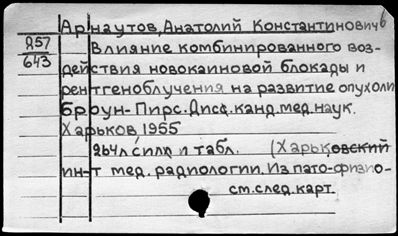 Арнаутов, Анатолий Константинович
Д57
643
Влияние комбинированного воз-
действия новокаиновой блокады и
рентгеноблучения на развитие опухоли
Броун-Пирс. Дисс. канд. мед. наук.
Харьков 1955
264л с илл и табл. (Харьковский
ин-т мед. радиологии. Из пато-физио-
см. след карт.